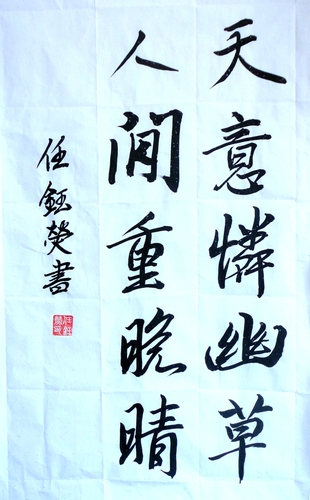 天意憐幽草
人间重晚晴
任鈺熒書